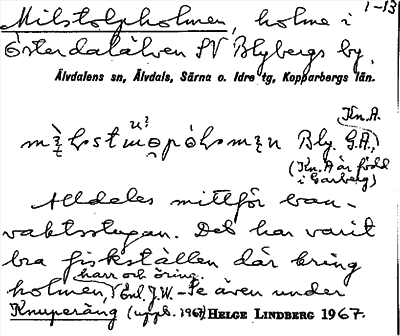 1-13
Milstolpholmen, holme i
Österdalälven SV Blybergs by,
Älvdalens sn, Älvdals, Särna o. Idre tg, Kopparbergs län.
Kn. A.
Bly. G.A.,
(Kn. A är född
i Garberg)
Alldeles mittför ban-
vaktsstugan. Det har varit
bra fiskställen där kring
harr och öring.
holmen, Enl. J.W. – Se även under
Knuperäng (uppt. 1967) HELGE LINDBERG 1967.